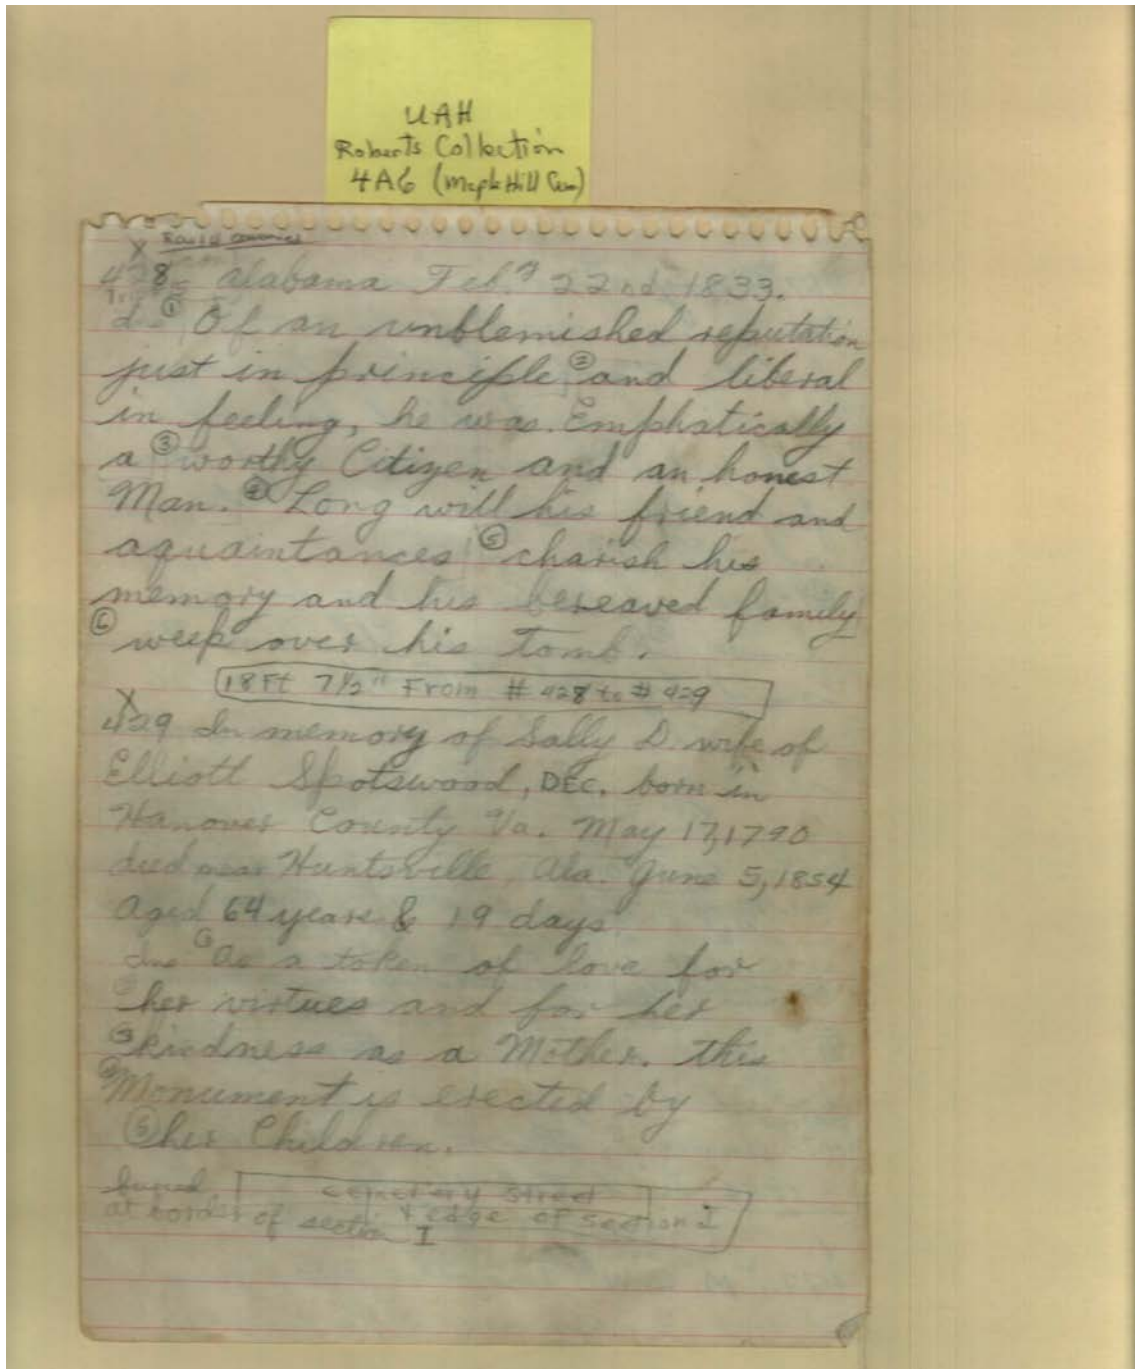 UAH
Roberts Collection
4A6 (Maple Hill Cem)
X
428 Alabama Feb.y 22nd 1833.
① Of an unblemished reputation
just in principle ② and liberal
in feeling, he was. Emphatically
a ③ worthy Citizen and an honest
Man. ④ Long will his friend and
aquaintances ⑤ charish his
memory and his bereaved family
⑥ weep over his tomb.
18Ft 7 1/2" From # 428 to # 429
X
429 In memory of Sally D. wife of
Elliott Spotswood, DEC. born in
Hanover County Va. May 17, 1790
died near Huntsville, Ala. June 5, 1854
Aged 64 years & 19 days
ins ① As a token of love for
② her virtues and for her
③ kindness as a Mother. this
④ Monument is erected by
⑤ her Children.
cemetery street
at border of section I & edge of section I